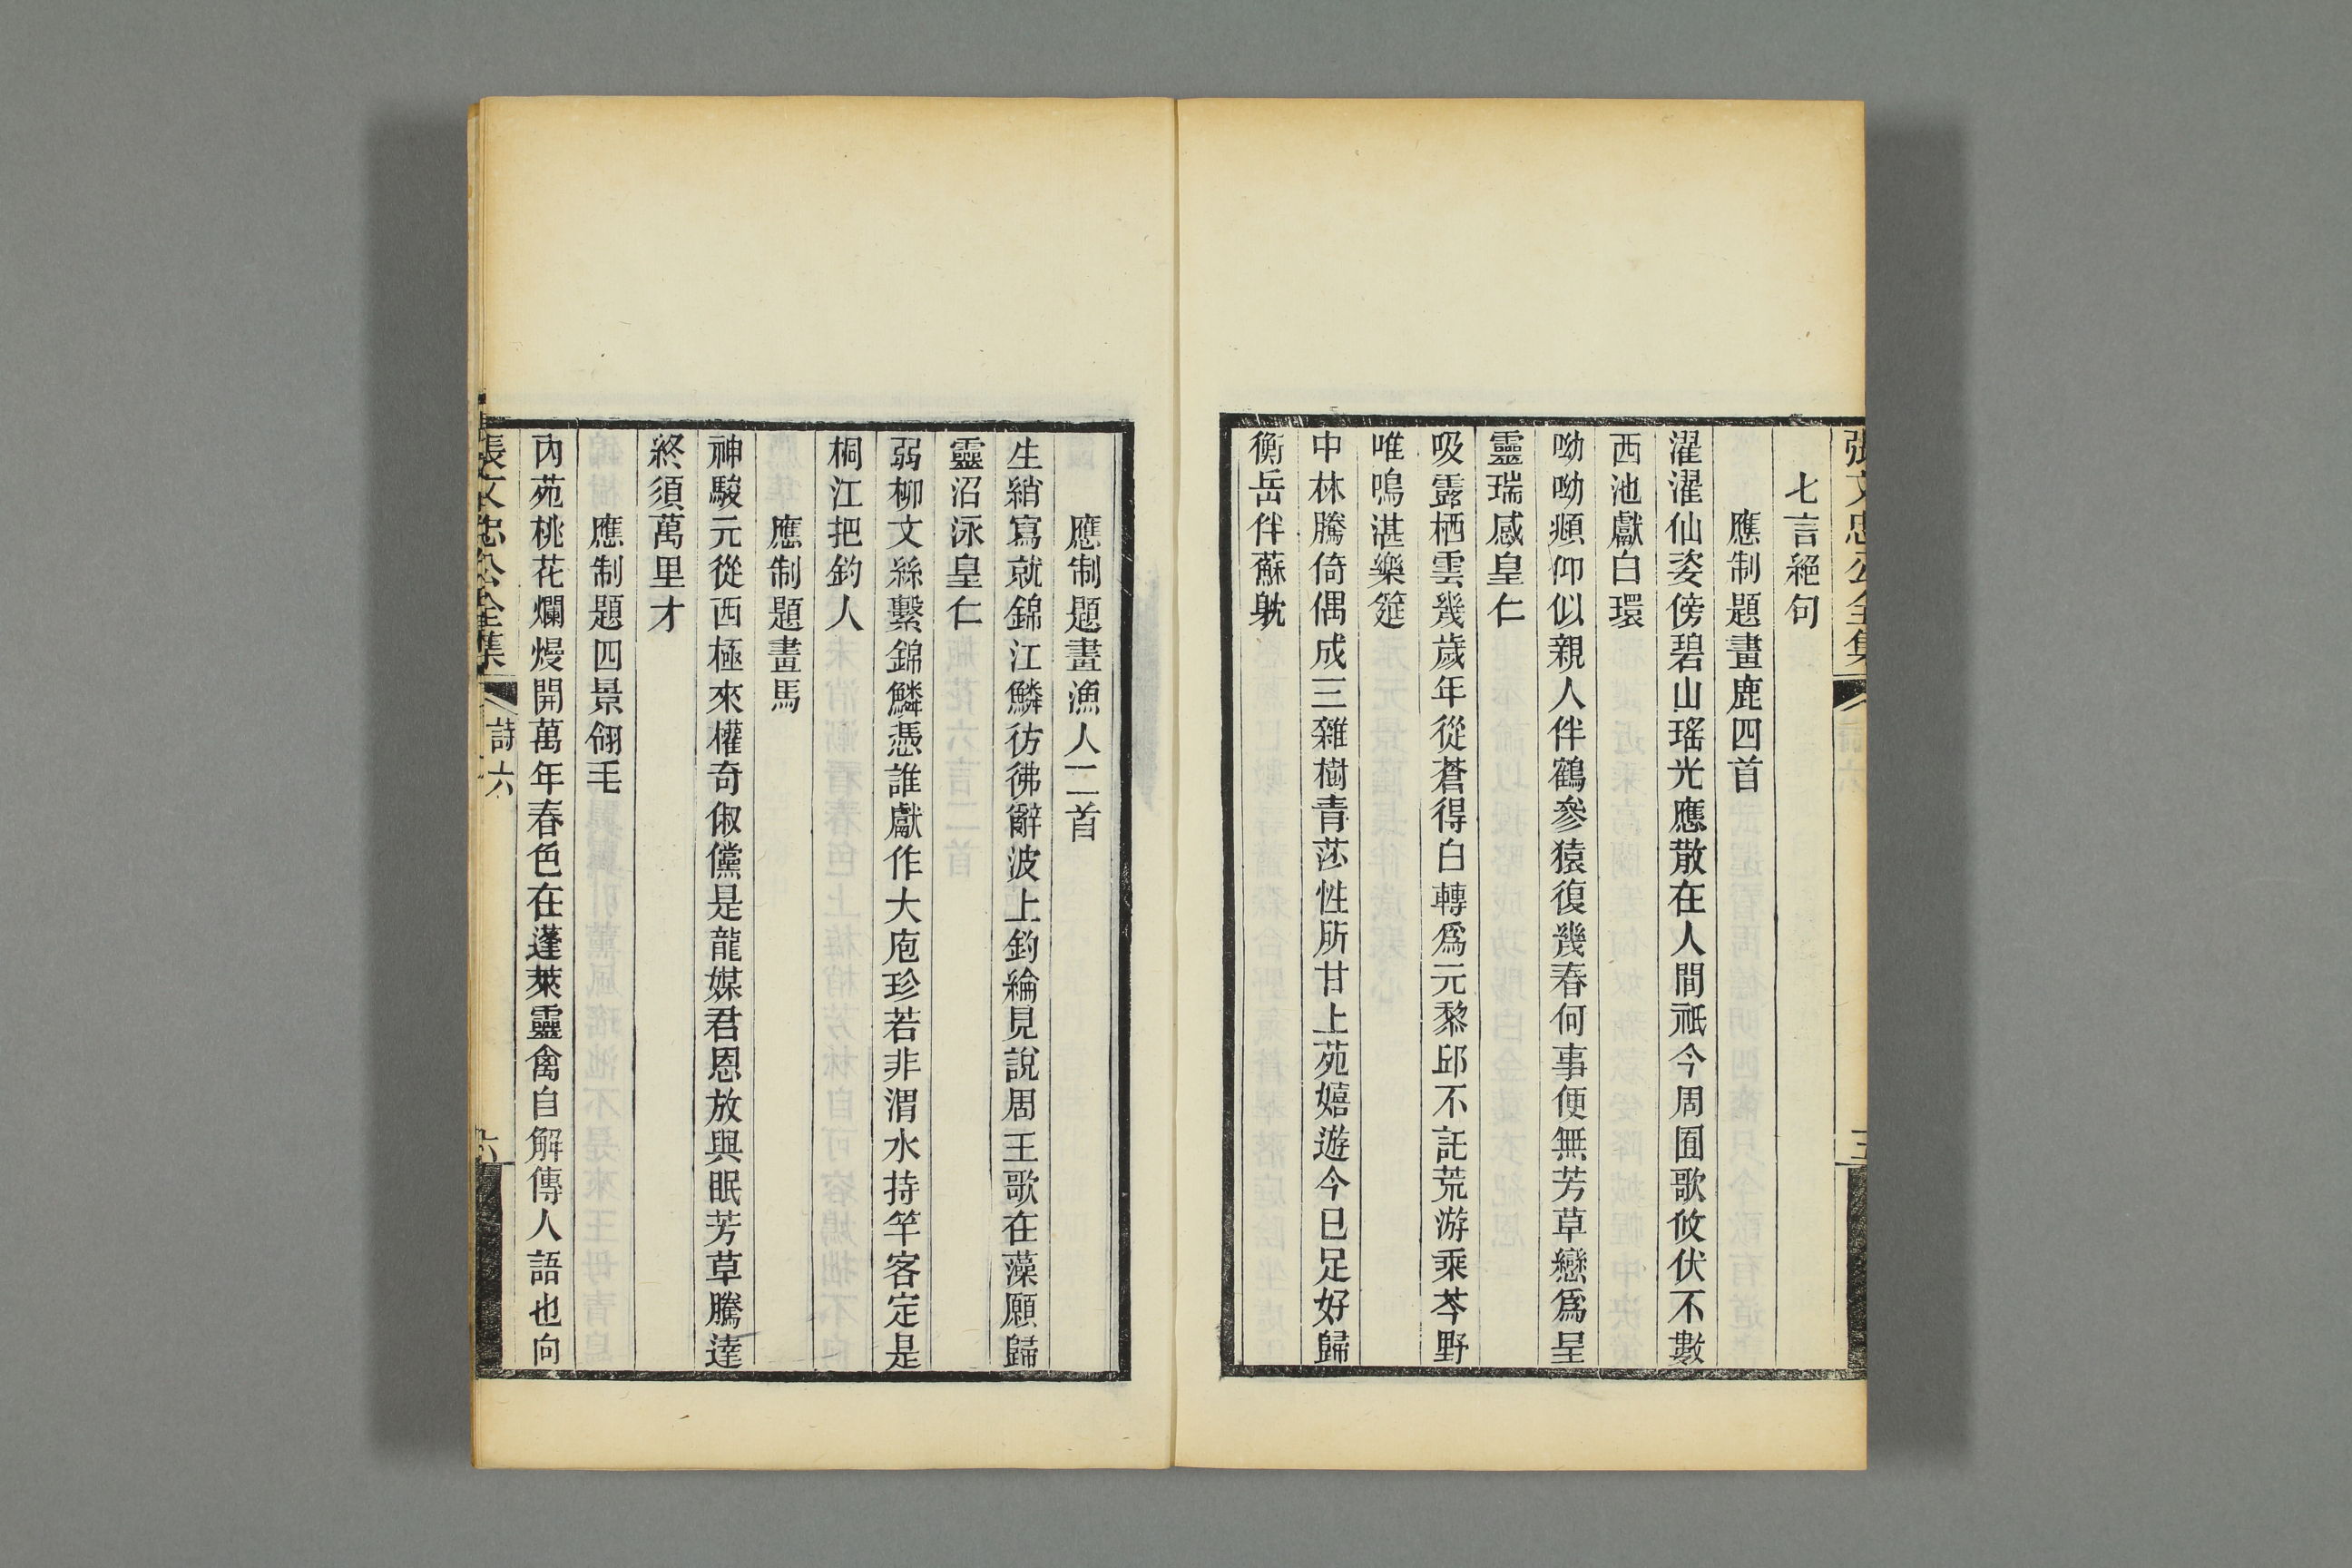 張文忠公全集
三
七言絕句
應制題畫鹿四首
濯濯仙姿傍碧山瑤光應散在人間祇今周囿歌攸伏不數
西池獻白環
呦呦頫仰似親人伴鶴參猿復幾春何事便無芳草戀爲呈
靈瑞感皇仁
吸露栖雲幾歲年從蒼得白轉爲元黎邱不託荒游乘芩野
唯鳴湛樂筵
中林騰倚偶成三雜樹青莎性所甘上苑嬉遊今已足好歸
衡岳伴蘇躭
應制題畫漁人二首
生綃寫就錦江鱗彷彿辭波上釣綸見說周王歌在藻願歸
靈沼泳皇仁
弱柳文絲繫錦鱗憑誰獻作大庖珍若非渭水持竿客定是
桐江把釣人
應制題畫馬
神駿元從西極來權奇俶儻是龍媒君恩放與眠芳草騰達
終須萬里才
應制題四景翎毛
內苑桃花爛熳開萬年春色在蓬萊靈禽自解傳人語也向
張文忠公全集
詩六
六